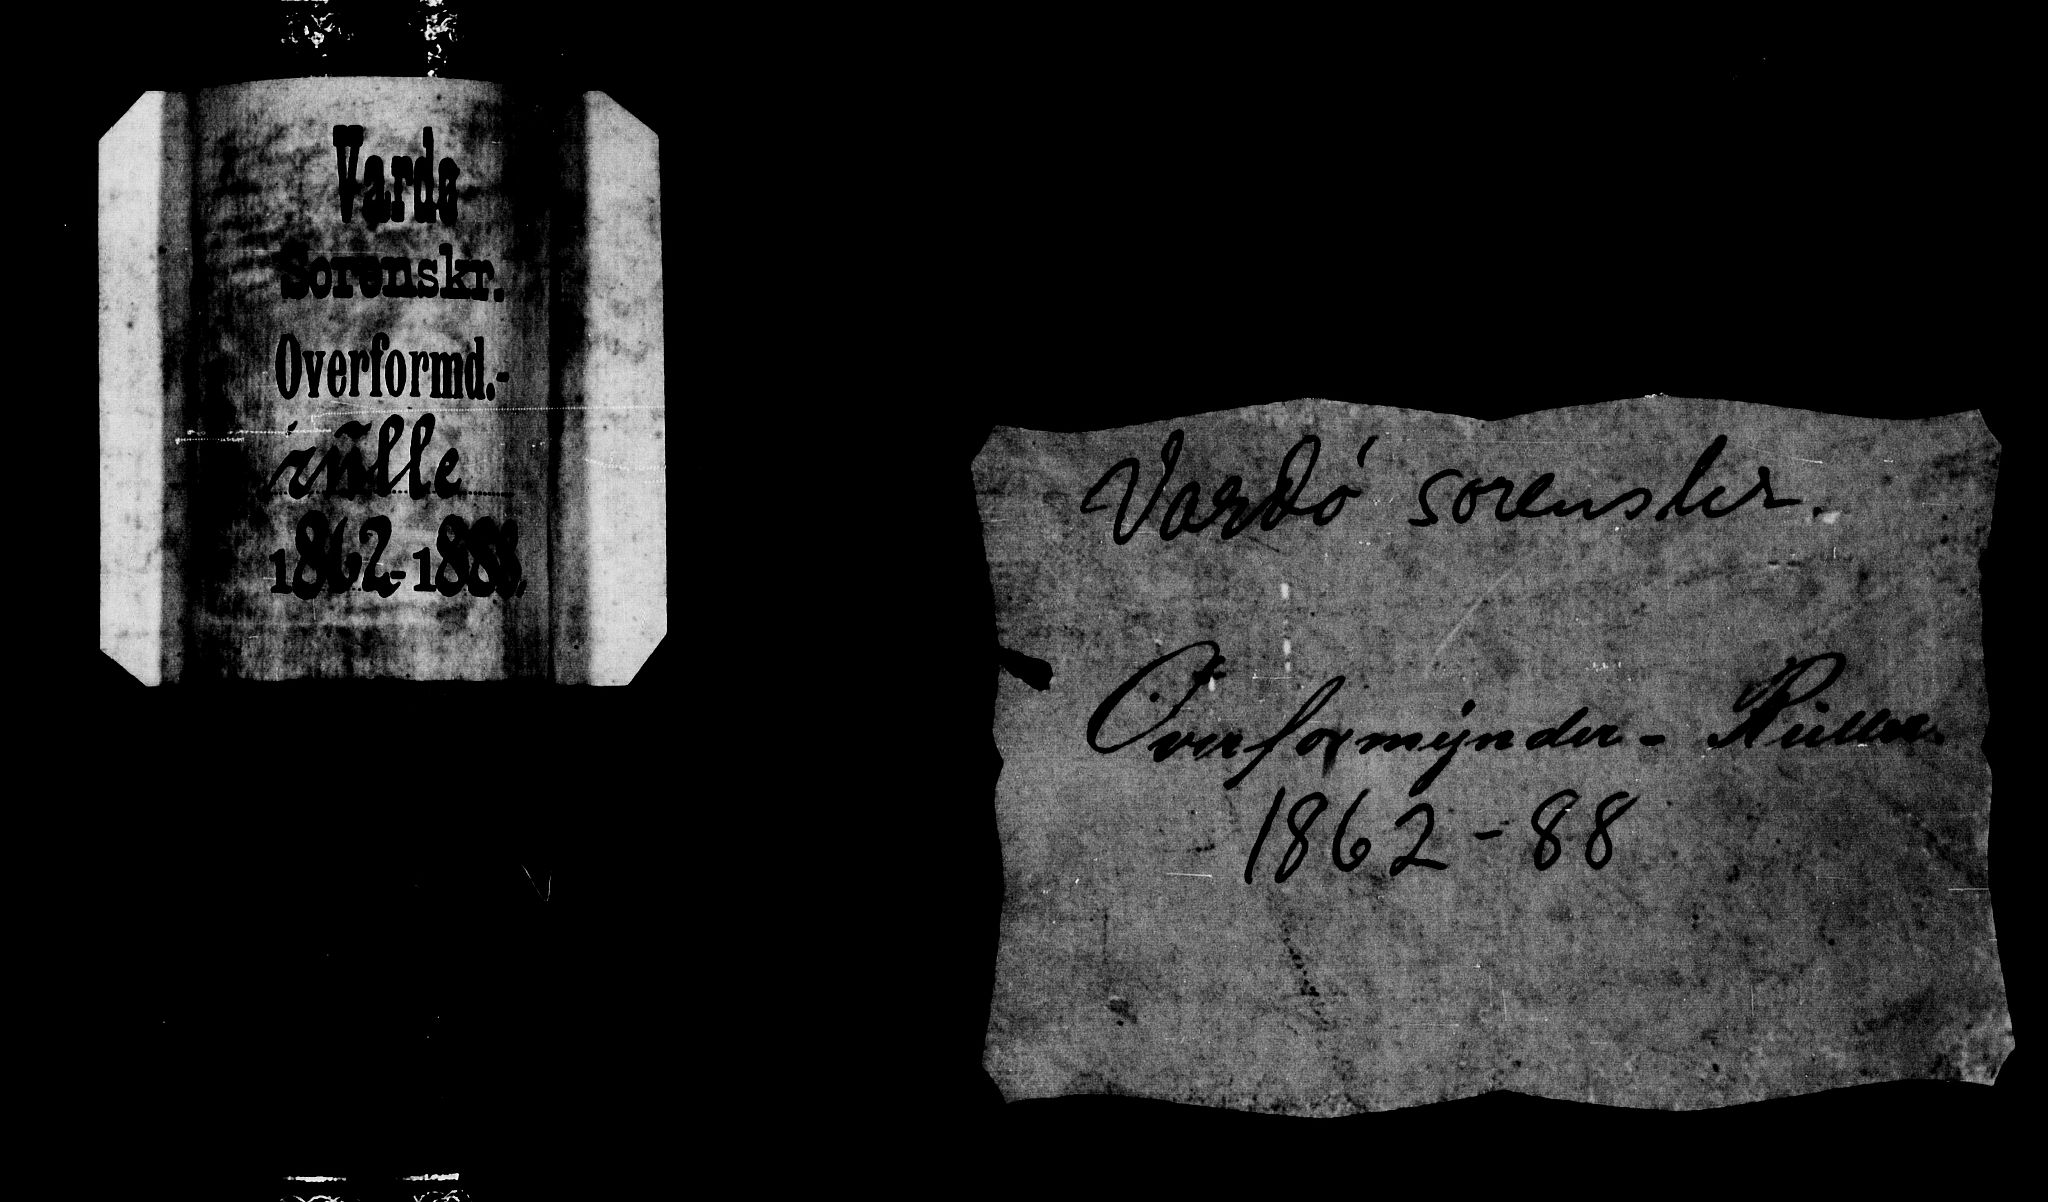 Vardø
Sorenskr.
Overformd.-
rŭlle
1862-1888.
Vardø sorenskr.
Overformynder-Rŭller.
1862-88